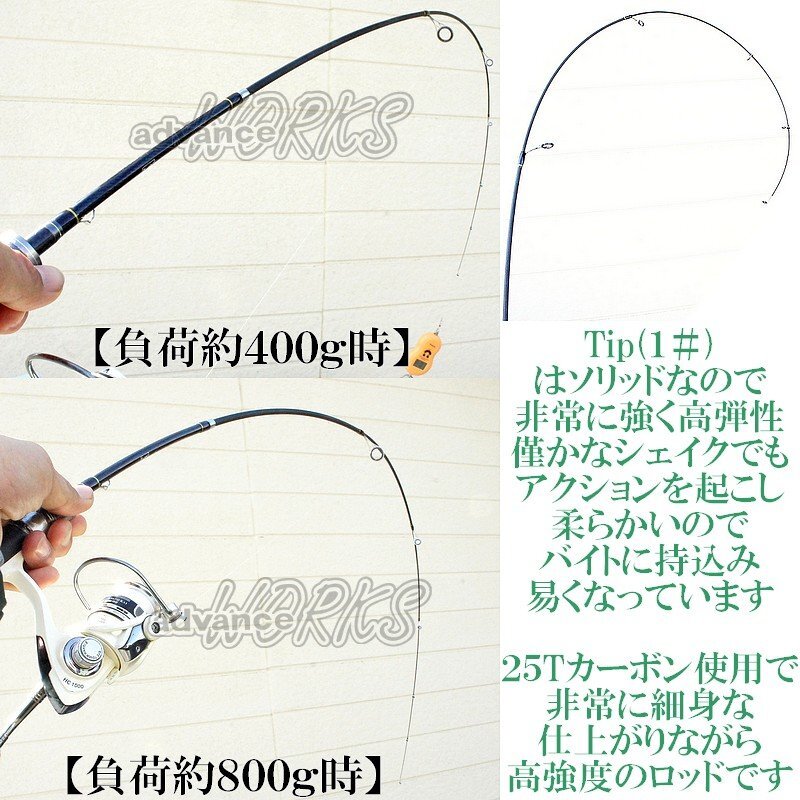 advance WORKS
【負荷約400g時】
Tip(1＃)
はソリッドなので
非常に強く高弾性
僅かなシェイクでも
アクションを起こし
柔らかいので
バイトに持込み
易くなっています
25Tカーボン使用で
非常に細身な
仕上がりながら
高強度のロッドです
advance WORKS
HC 1000
【負荷約800g時】